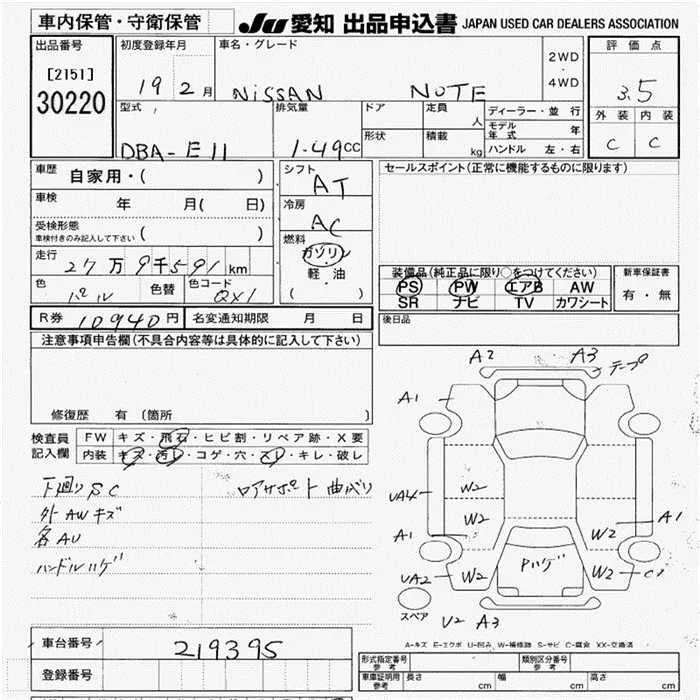 車内保管・守衛保管
JU 愛知 出品申込書 JAPAN USED CAR DEALERS ASSOCIATION
出品番号
[2151]
30220
初度登録年月
19 2月
車名・グレード
NISSAN NOTE
2WD
・
4WD
評価点
3.5
外装 内装
C C
型式
DBA-E11
排気量
1.49CC
ドア
形状
定員
人
積載
kg
ディーラー・並行
モデル年式 年
ハンドル 左・右
車歴
自家用・( )
車検 年 月( 日)
受検形態
車検付きのみ記入して下さい ( )
走行
27万9千591km
色 パール 色替 色コード QX1
シフト
AT
冷房
AC
燃料
ガソリン
・
軽・油
( )
セールスポイント(正常に機能するものに限ります)
装備品(純正品に限り○をつけてください)
PS PW エアB AW
SR ナビ TV カワシート
新車保証書
有・無
R券 10940円 名変通知期限 月 日
後日品
注意事項申告欄(不具合内容等は具体的に記入して下さい)
修復歴 有 〔箇所 〕
検査員
記入欄
FW キズ・飛石・ヒビ割・リペア跡・X要
内装 キズ・汚レ・コゲ・穴・スレ・キレ・破レ
下廻りSC ロアサポート曲がり
外AWキズ
各AU
ハンドルハゲ
A2 A3
テープ
A1
UA4
W2
W2
A1
A1
W2
UA2
W2
Pハゲ
W2
スペア
U2 A3
A-キズ E-エクボ U-凹み W-補修跡 S-サビ C-腐食 XX-交換済
車台番号 219395
登録番号
形式指定番号
参考
類別区分番号
参考
車庫証明用
参考
長さ cm 幅 cm 高さ cm